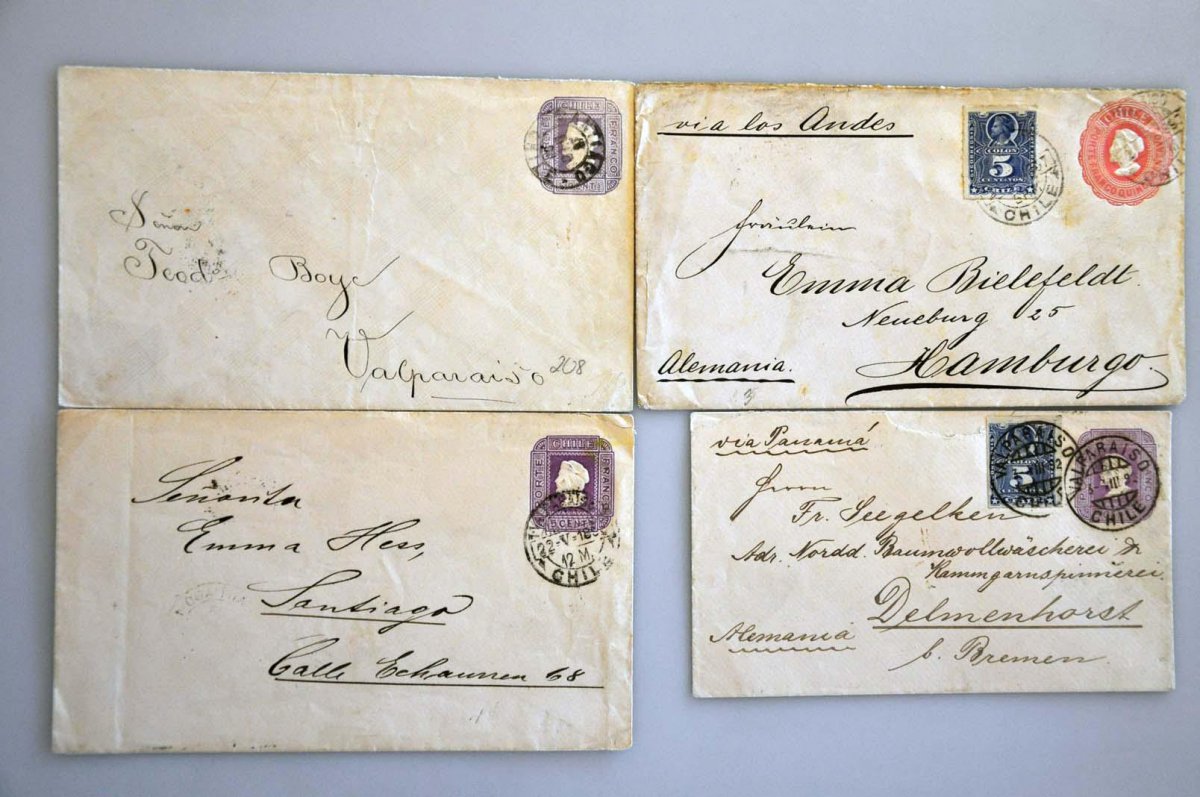 CHILE
FRANCO
Señor
Teod Boye
Valparaiso
208
via los Andes
COLON
5
CENTAVOS
CHILE
CHILE
Fräulein
Emma Bielefeldt.
Neueburg 25
Alemania.
Hamburgo.
3
CHILE
PORTE
FRANCO
22-V-
12 M.
CHILE
Señorita
Emma Hess,
Santiago
Calle Echaurren 68
via Panamá
COLON
5
VALPARAISO
VALPARAISO
CHILE
Herrn
Fr. Seegelken
Adr. Nordd. Baumwollwäscherei &
Kammgarnspinnerei.
Delmenhorst
Alemania
b. Bremen.